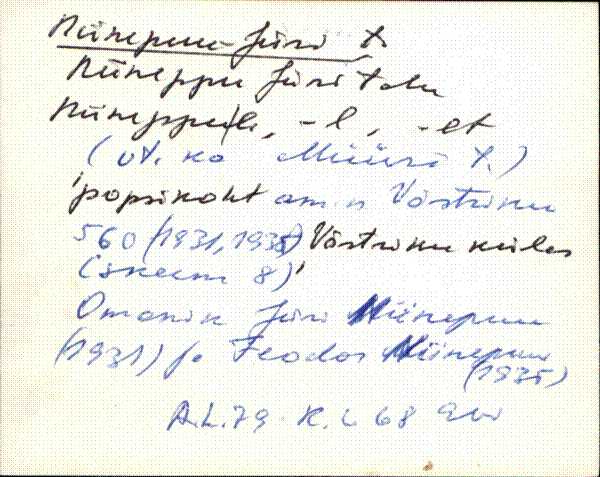 Niinepuu-Jüri t.
Niineppu Jüri talu
Niineppu(le, -l, -et
(vt. ka Müüri t.)
'popsikoht a.m.n Võstriku
560 (1931, 1935) Võstriku külas
(skeem 8)'
Omanik Jüri Niinepuu
(1931) ja Feodor Niinepuu
(1935)
A.L. 79 K. L 68